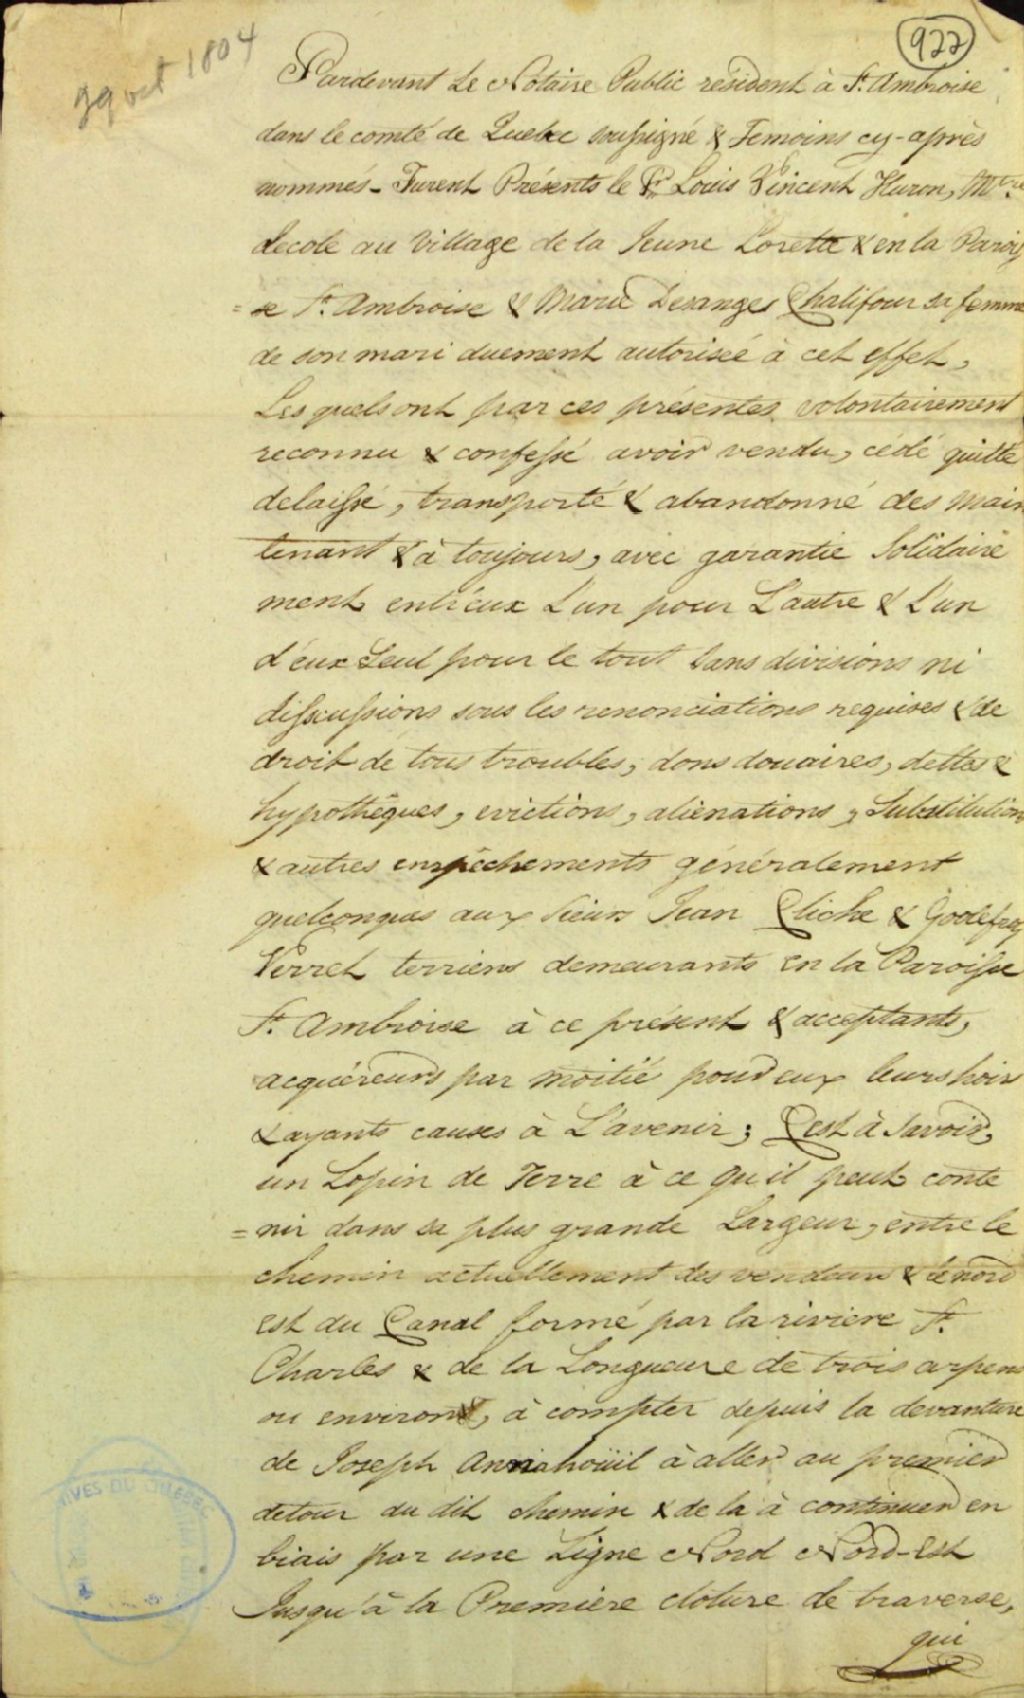 922
29 oct 1804
Pardevant Le Notaire Public résident à St. Ambroise
dans le comté de Quebec soussigné & Temoins cy-après
nommés - Furent Présents le Sr. Louis Vincent Huron, Mtre.
decole au Village de la Jeune Lorette & en la Parois
=se St. Ambroise & Marie Desanges Chalifour sa femme
de son mari duement autorisée à cet effet,
Lesquels ont par ces présentes volontairement
reconnu & confessé avoir vendu, cédé quitté
delaissé, transporté & abandonné des main
tenant & à toujours, avec garantie Solidaire
ment entr'eux L'un pour L'autre & L'un
d'eux Seul pour le tout Sans divisions ni
disscussions sous les renonciations requises & de
droit de tous troubles, dons douaires, dettes &
hypothêques, evictions, alienations, Substitutions
& autres empêchements généralement
quelconques aux Sieurs Jean Cliche & Godefroy
Verret terriens demeurants en la Paroisse
St. Ambroise à ce présent & acceptants,
acquéreurs par moitié pour eux leurs hoirs
& ayants causes à L'avenir; C'est à Savoir,
un Lopin de Terre à ce qu'il peut conte
=nir dans sa plus grande Largeur, entre le
chemin actuellement des vendeurs & le nord
Est du Canal formé par la riviere St.
Charles & de la Longueure de trois arpens
ou environ, à compter depuis la devanture
de Joseph à aller au premier
detour du dit chemin & de la à continuer en
biais par une Ligne Nord Nord-Est
Jusqu'à la Premiere cloture de traverse,
qui
ARCHIVES DU QUEBEC